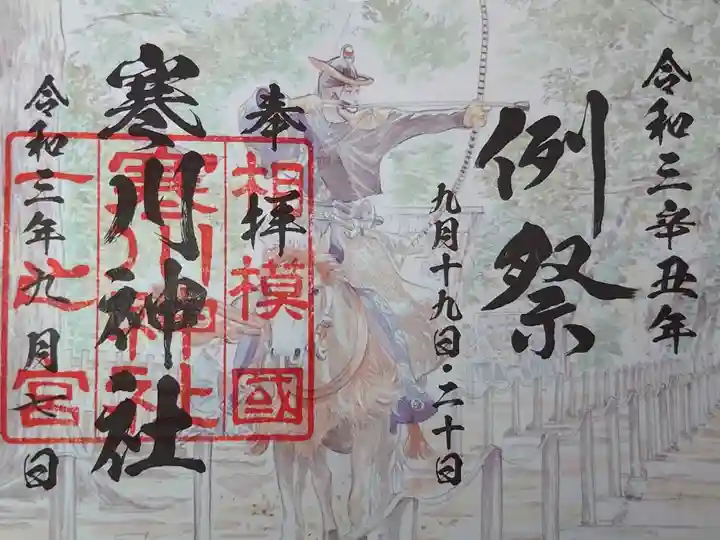 令和三辛丑年
例祭
九月十九日・二十日
奉拝
相模國
寒川神社
寒川神社
一之宮
令和三年九月七日